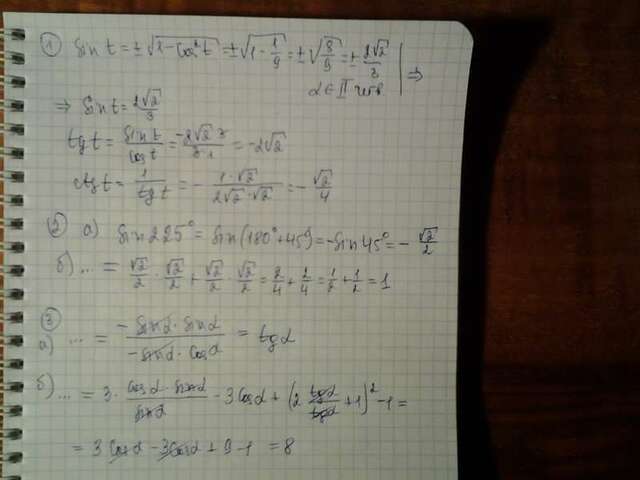 ① Sin t = ±√(1-cos²t) = ±√(1-1/9) = ±√(8/9) = ± 2√2/3 | ⇒
α ∈ II четв
⇒ Sin t = 2√2/3
tg t = Sin t/Cos t = -2√2·3/3·1 = -2√2
ctg t = 1/tg t = - 1·√2/2√2·√2 = - √2/4
② а) Sin 225° = Sin(180°+45°) = -Sin 45° = - √2/2
б) ... = √2/2 · √2/2 + √2/2 · √2/2 = 2/4 + 2/4 = 1/2 + 1/2 = 1
③
а) ... = -Sin α · Sin α/-Sin α · Cos α = tg α
б) ... = 3 · Cos α · Sin α/Sin α - 3Cos α + (2 tg α/tg α + 1)² - 1 =
= 3Cos α - 3Cos α + 9 - 1 = 8